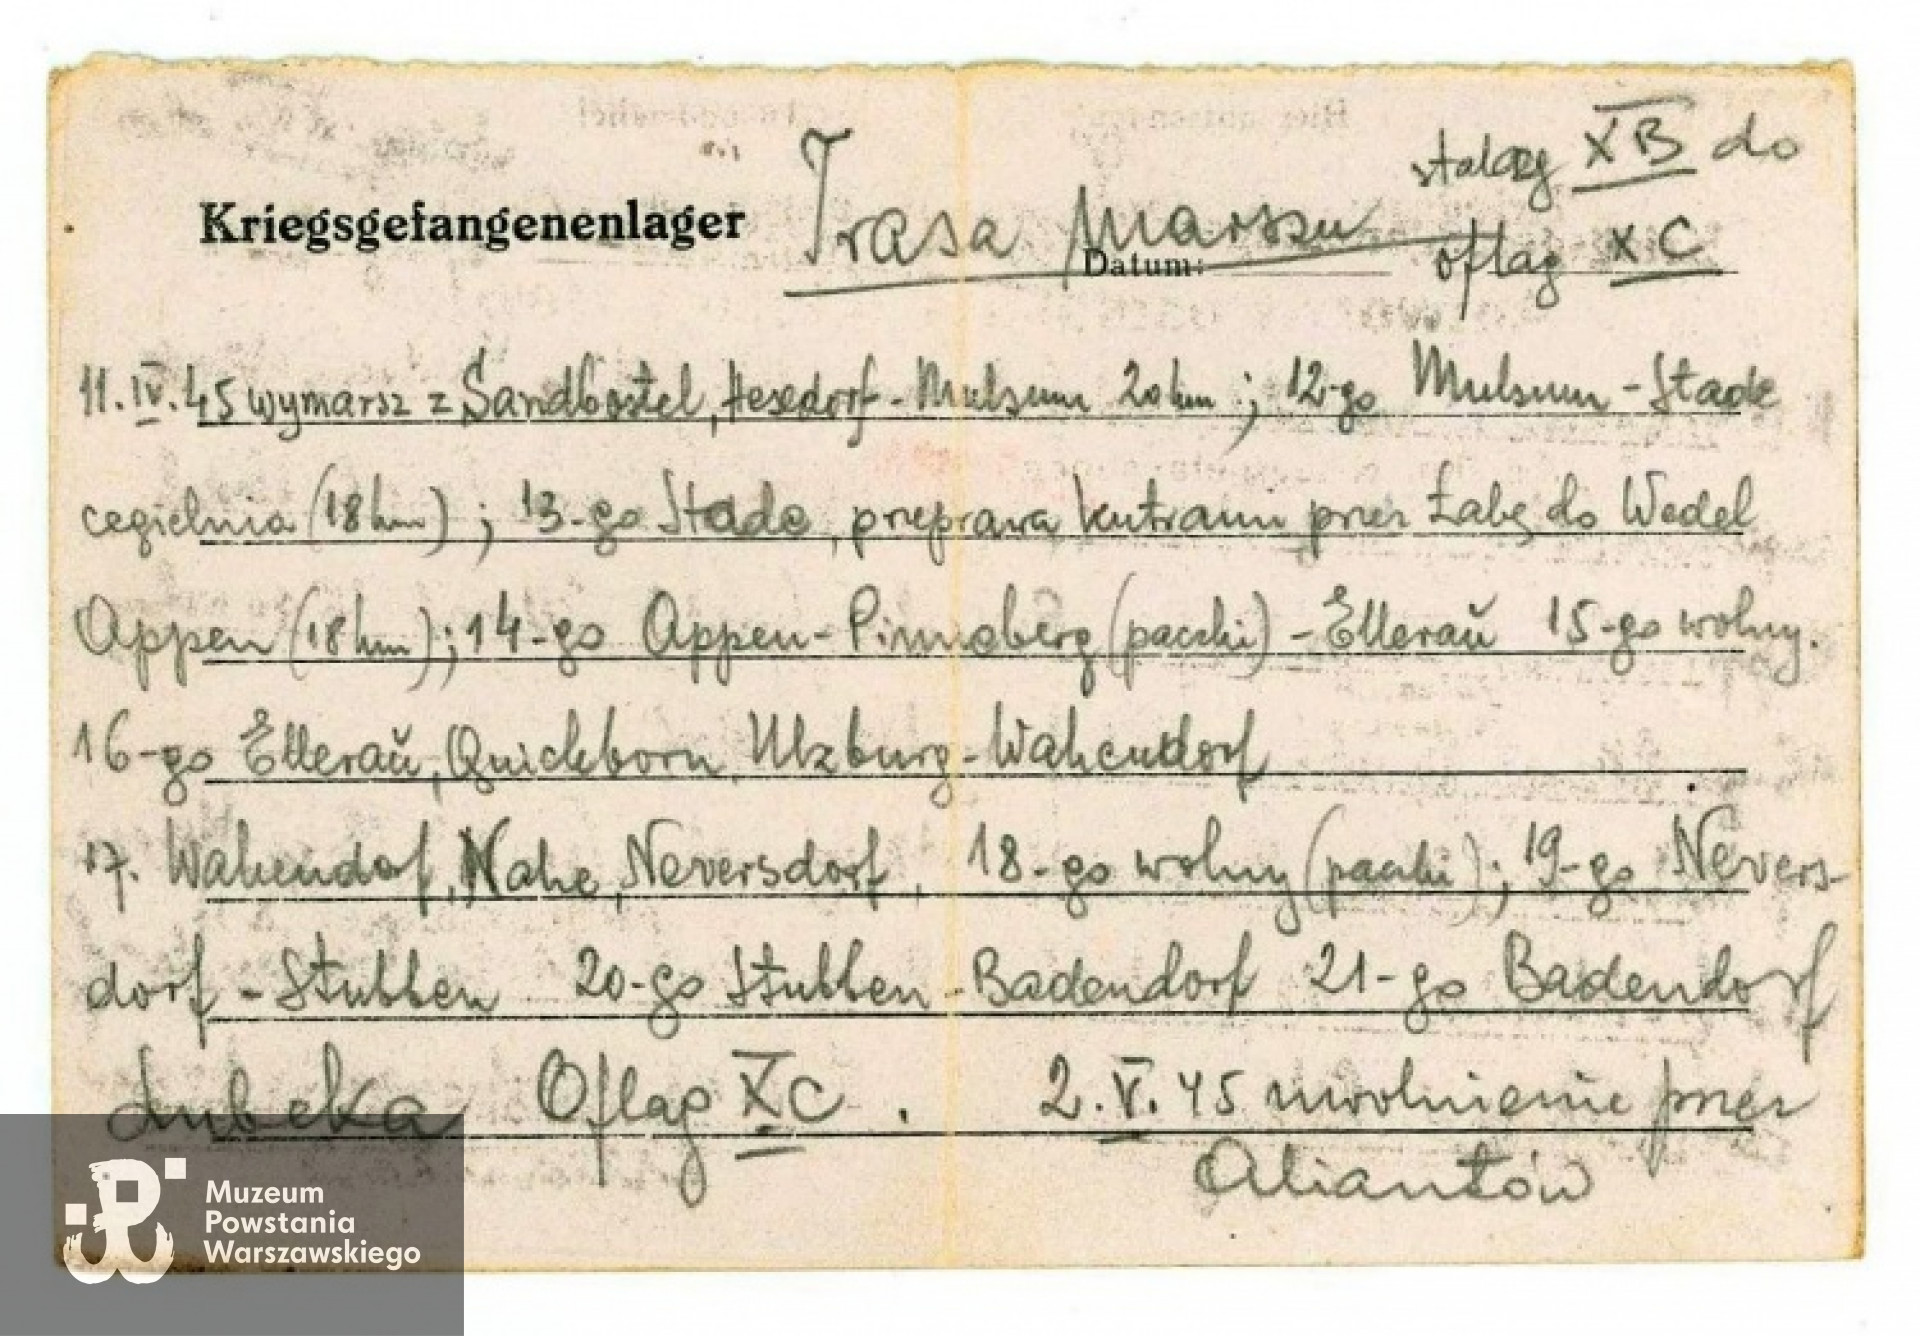 Kriegsgefangenenlager Trasa marszu stalag XB do
Datum: oflag XC
11.IV.45 wymarsz z Sandbostel, Hesedorf - Mulsum 20 km; 12-go Mulsum - Stade
cegielnia (18 km); 13-go Stade, przeprawa kutrami przez Łabę do Wedel
Appen (18 km); 14-go Appen - Pinneberg (paczki) - Elleraŭ 15-go wolny.
16-go Elleraŭ, Quickborn, Ulzburg - Wakendorf
17. Wakendorf, Nahe, Neversdorf, 18-go wolny (paczki); 19-go Nevers-
dorf - Stubben 20-go Stubben - Badendorf 21-go Badendorf
Lubeka Oflag XC. 2.V.45 uwolnienie przez
Aliantów
Muzeum
Powstania
Warszawskiego